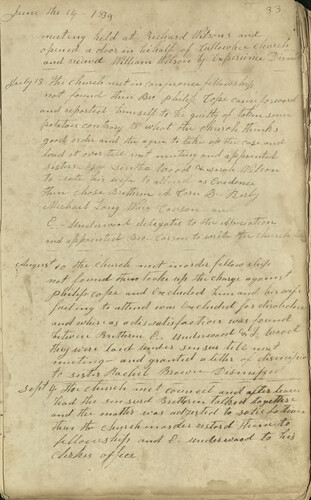 June the 19 - 1839
33
meeting held at Richard Wilsons and
opened a door in behalf of church
and recived William Wilson by Experience Dismist
July 13 The church met in conference fellowship
not found then Bro. Philip Cope came forward
and reported himself to be guilty of
contrary to what the church thinks
good order and the agree to take up the case and
head it over till next meeting and appointed
sisters Wood & Sarah Wilson
to his wife to attend as Evidence
then chose Brethren
Michael Long Carson and
E. Underwood delegates to the association
and appointed Bro. Carson to write the church
August 10 the church met in order fellowship
not found then took up the charge against
philip cope and Excluded him and his wife
failing to attend was Excluded for disobedience
and where as a dissatisfaction was found
between Brethren E. Underwood & J. Wood
they ware laid under sensure till next
meeting and granted a letter of dismission
to sister Rachel Brown Dismissed
Sept 4 The church met convened and after
that the sensured Brethren talked together
and the matter was adjusted to satisfaction
then the church in order restord them to
fellowship and E. underwood to his
clerks office